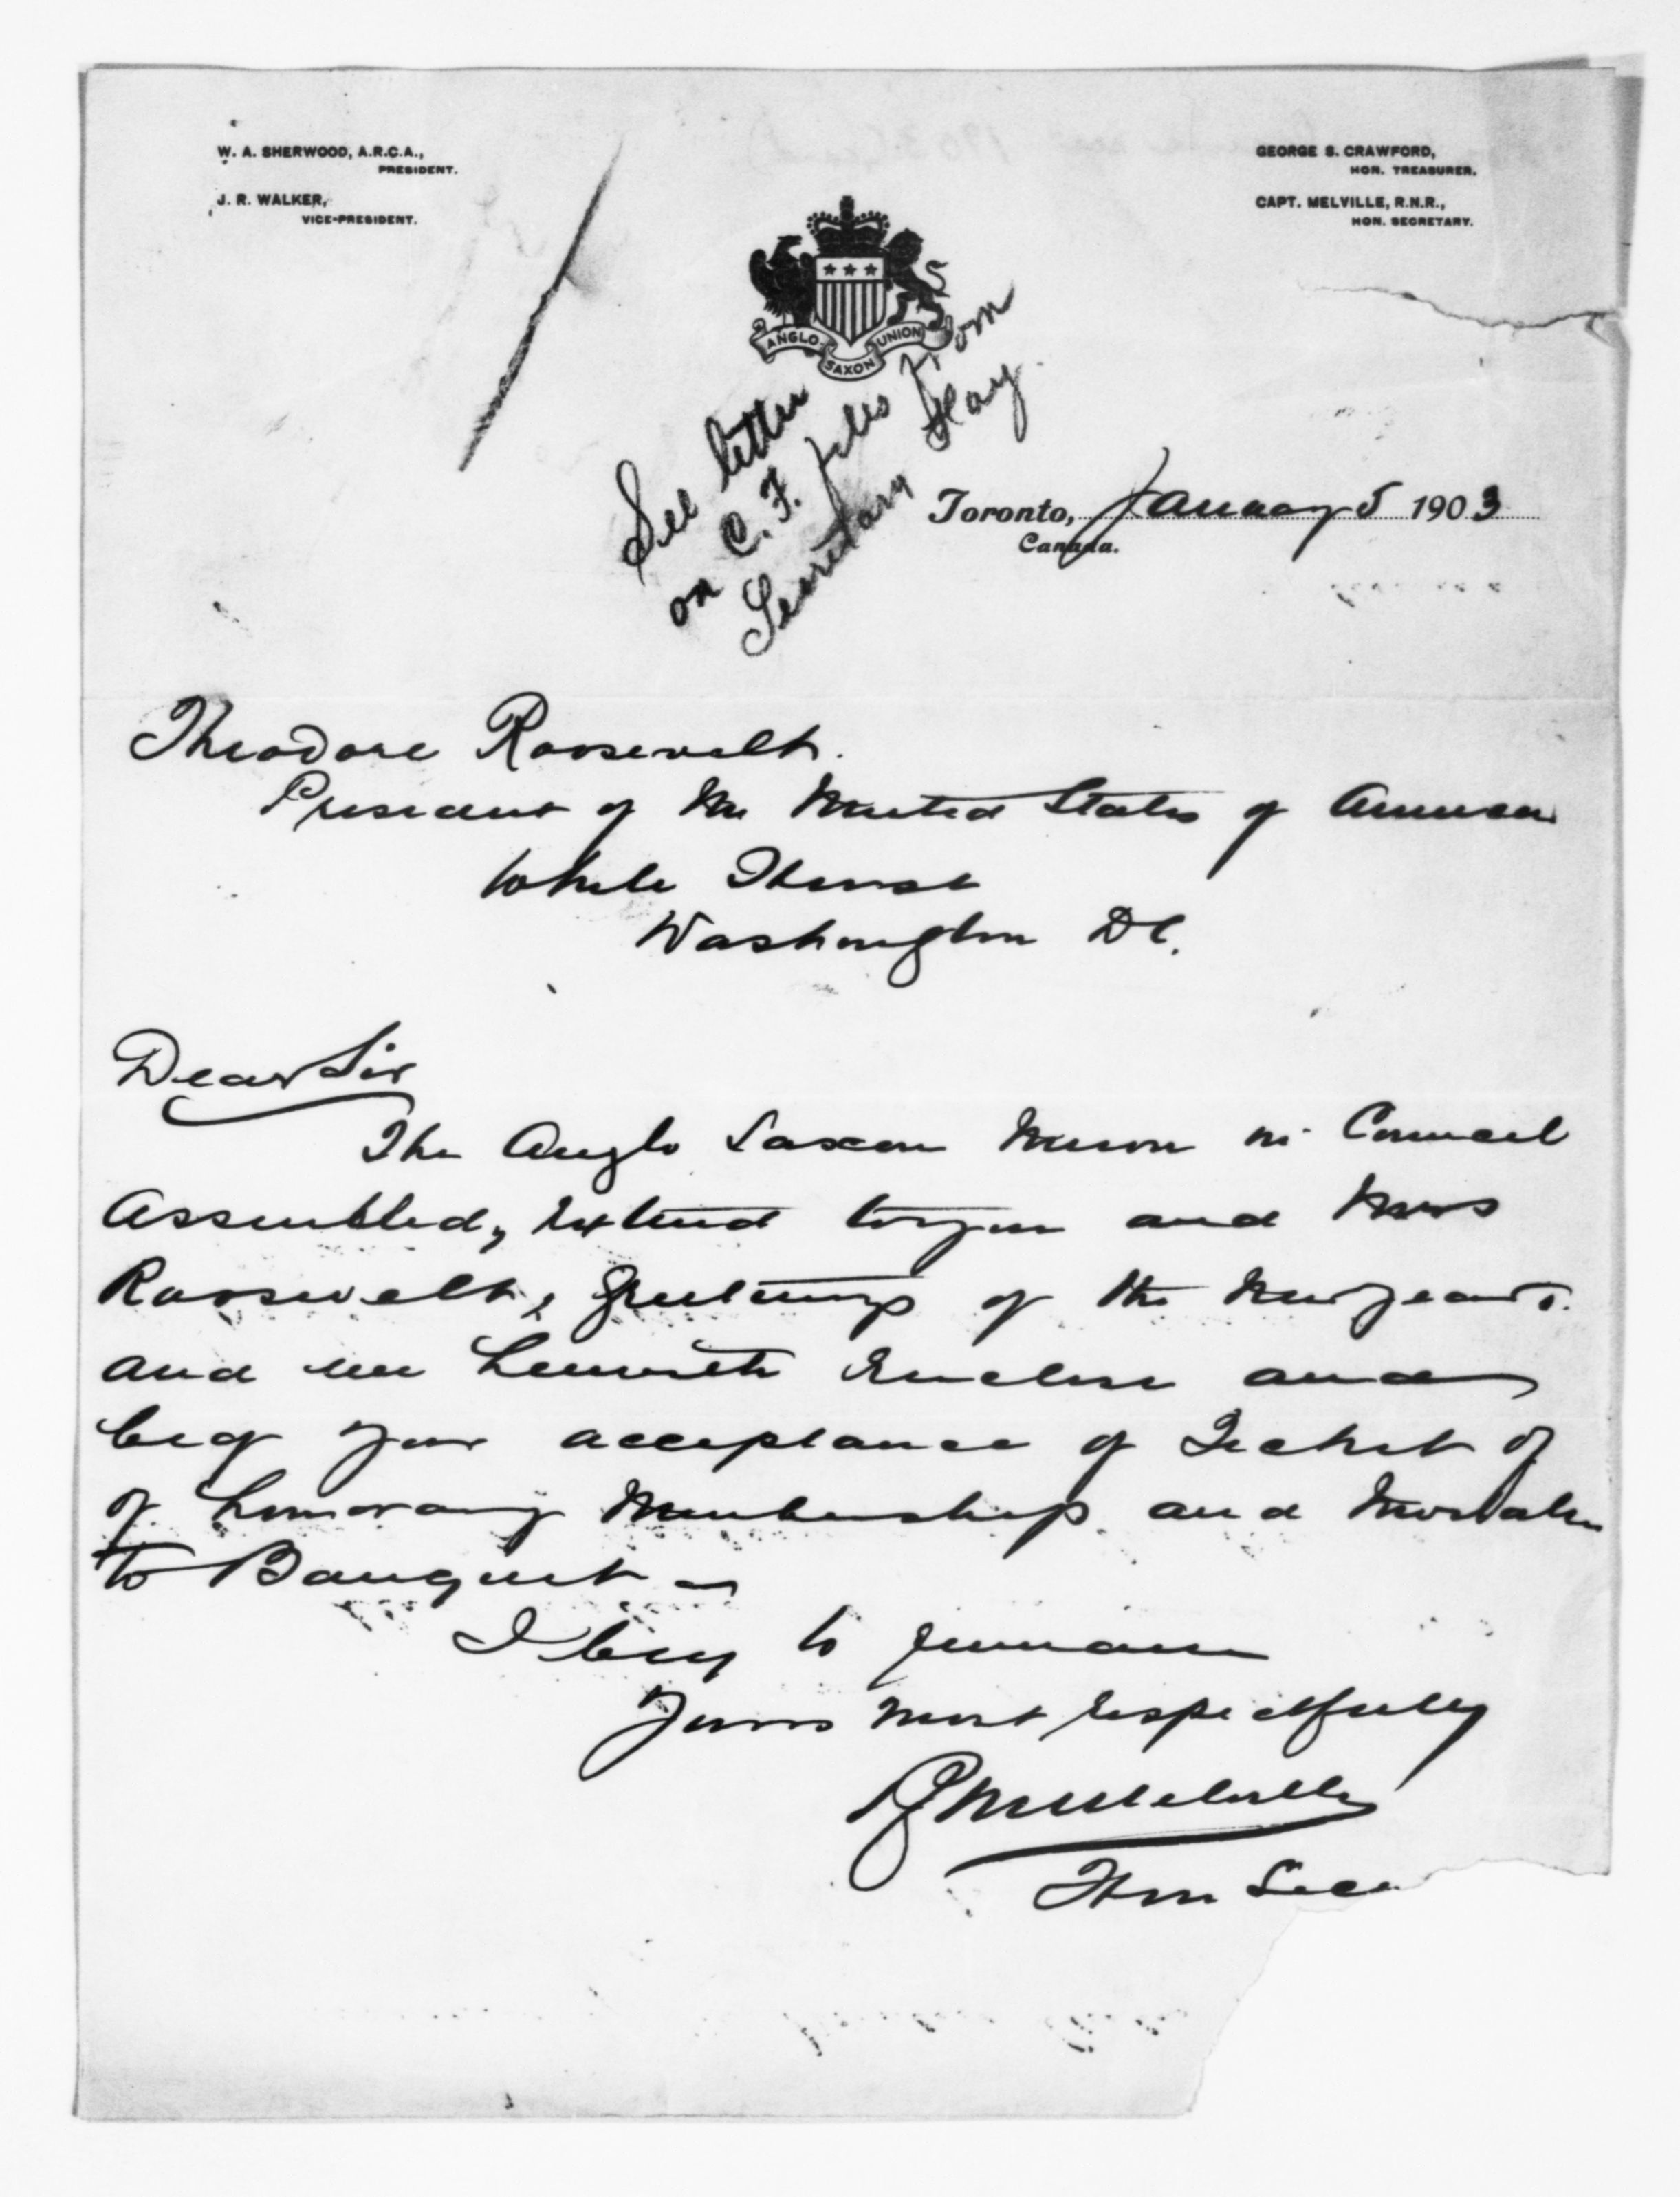 W. A. SHERWOOD, A.R.C.A.,
PRESIDENT.
J. R. WALKER,
VICE-PRESIDENT.
GEORGE S. CRAWFORD,
HON. TREASURER.
CAPT. MELVILLE, R.N.R.,
HON. SECRETARY.
ANGLO-SAXON UNION
See letter
on C. F. files from
Secretary Hay.
Toronto, January 5 1903
Canada.
Theodore Roosevelt.
President of the United States of America
White House
Washington DC.
Dear Sir
The Anglo Saxon Union in Council
Assembled, Extend to you and Mrs
Roosevelt, Greetings of the New Year.
and we herewith Enclose and
beg your acceptance of Ticket of
of honorary Membership and
to Banquet
I beg to remain
Yours most respectfully
Melville
Hon Sec